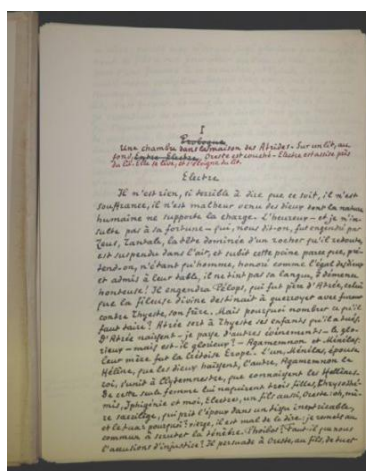 I
Prologue
Une chambre dans la maison des Atrides - Sur un lit, au
fond, Oreste est couché - Electre est assise près
du lit. Elle se lève, et s'éloigne du lit.
Electre
Il n'est rien, si terrible à dire que ce soit, il n'est
souffrance, il n'est malheur venu des dieux dont la nature
humaine ne supporte la charge - L'heureux - et je n'in-
sulte pas à sa fortune - qui, nous dit-on, fut engendré par
Zeus, Tantale, la tête dominée d'un rocher qu'il redoute,
est suspendu dans l'air, et subit cette peine parce que, pré-
tend-on, n'étant qu'homme, honoré comme l'égal des dieux
et admis à leur table, il ne tint pas sa langue, ô démence
honteuse! Il engendra Pélops, qui fut père d'Atrée, celui
que la fileuse divine destinait à guerroyer avec fureur
contre Thyeste, son frère. Mais pourquoi nombrer ce qu'il
faut taire? Atrée sert à Thyeste ses enfants qu'il a tués.
D'Atrée naissent - je passe d'autres événements - le glo-
rieux - mais est-il glorieux? - Agamemnon et Ménélas.
Leur mère fut la Crétoise Erope. L'un, Ménélas, épousa
Hélène, que les dieux haïssent, l'autre, Agamemnon en
roi, s'unit à Clytemnestre, que connaissent les Hellènes.
De cette seule femme lui naquirent trois filles, Chrysothé-
mis, Iphigénie et moi, Electre, un fils aussi, Oreste; oh, mè-
re sacrilège, qui prit l'époux dans un tissu inextricable,
et le tua! pourquoi? vierge, il est mal de le dire: je remets au
commun à scruter la ténèbre. Phoibos! Faut-il que nous
l'accusions d'injustice? Il persuade à Oreste, au fils, de tuer